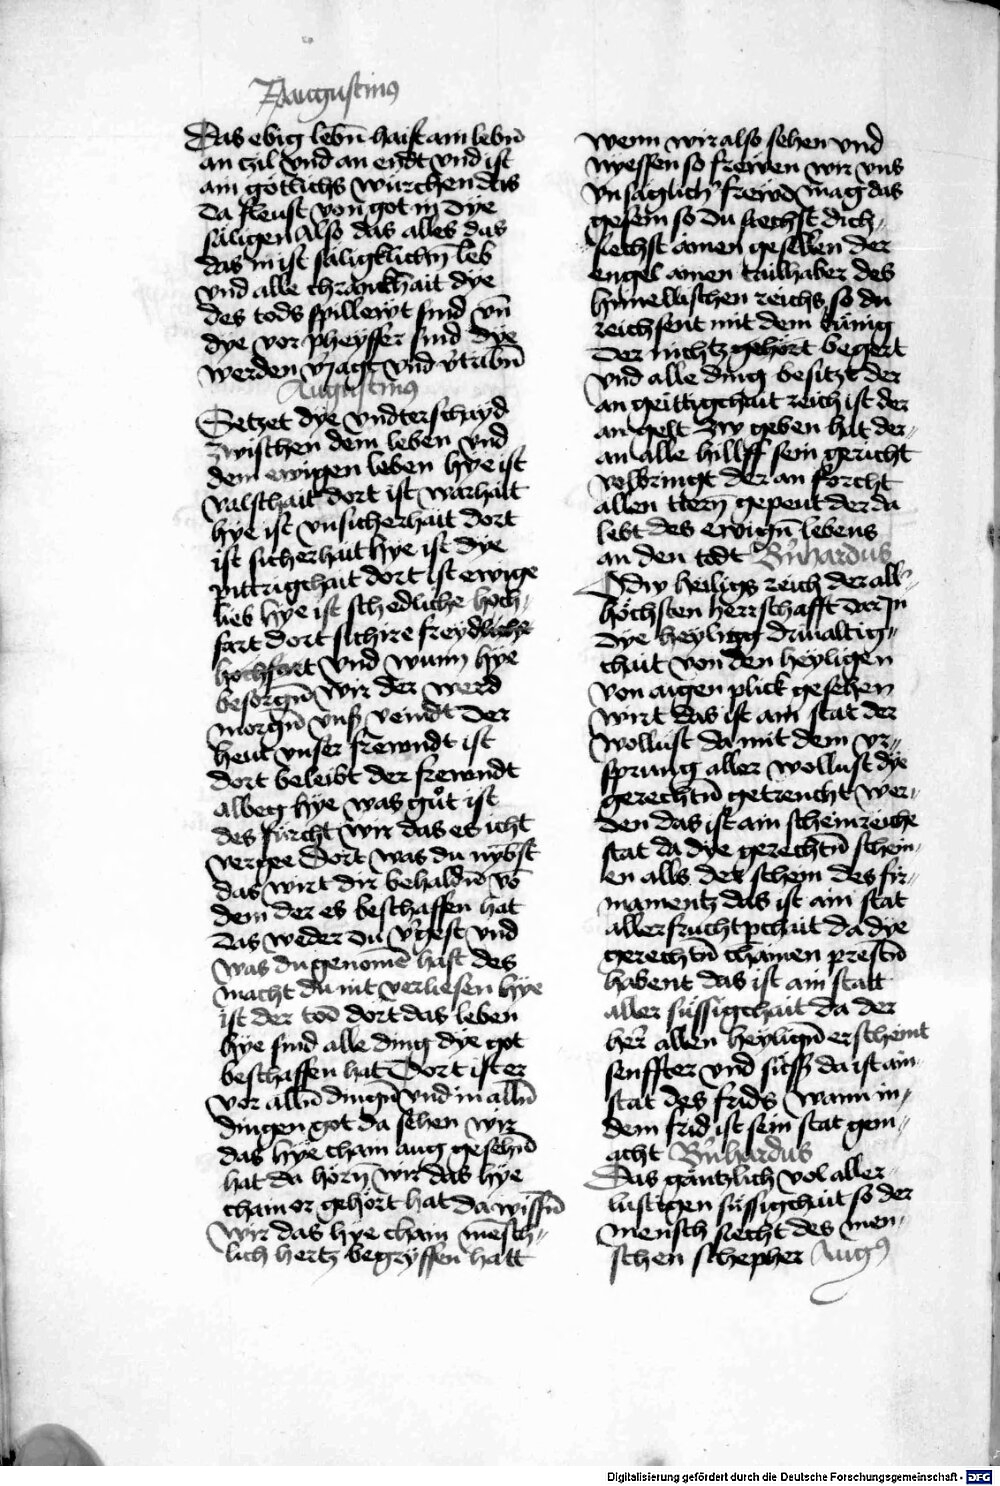 Augustinus
Das ebig lebn̄ haist ain lebn̄
an czil vnd an endt vnd ist
ain gotlichs würchen das
da fleust von got in dye
säligen Also das alles das
das in ist säligklichn̄ leb
vnd alle chranckhait dye
des tods spillewt sind vn̄
dye vor pheyffer sind dye
werden v̄iagt vnd v̄tribn̄
Augustinus
Setzet dye vndterschayd
zwischen dem leben vnd
dem ewigen leben hye ist
valschait dort ist warhait
hye ist vnsicherhait dort
ist sicherhait hye ist dye
pittrigchait dort ist ewige
lieb hye ist schedliche hoch-
fart dort sichire freydliche
hochfart vnd wunn hye
besorgn̄ wir der werd
morgn̄ vnß veindt der
heut vnser frewndt ist
dort beleibt der frewndt
albeg hye was gůt ist
des fürcht wir das es icht
vergee Dort was du nÿbst
das wirt dir behaldn̄ vō
dem der es beschaffen hat
das weder du v̄gest vnd
was du genomē hast des
macht du nit verliesen hye
ist der tod dort das leben
hye sind alle ding dye got
beschaffen hat Dort ist er
vor alln̄ dingn̄ vnd in alln̄
dingen got da sehen wir
das hye chain aug gesehn̄
hat da hörn̄ wir das hye
chain or gehört hat da wissn̄
wir das hye chain mēsch-
lich hertz begryffen hatt
wenn wir also sehen vnd
wyessen so frewen wir vns
vnsäglich frewd mag das
gesein so du siechst dich
siechst ainen gesellen der
engel ainen tailhaber des
hymellischen reichs so du
reichsent mit dem künig
der nichtz gehört begert
vnd alle ding besitzt der
an geittigchait reich ist der
an gelt zw geben hat der
an alle hillff sein gericht
volbringt der an forcht
allen ttern̄ gepeut der da
lebt des ewign̄ lebens
an den todt Bn̄hardus
O dw heiligs reich der all-
höchsten herrschafft dar in
dye heylig driualtig-
chait von den heyligen
von augen plick gesehen
wirt das ist ain stat der
wollust da mit dem vr-
sprung aller wollust dye
gerechtn̄ getrencht wer-
den das ist ain scheinreiche
stat da dye gerechtn̄ schein-
en alls der schein des fir-
mamentz das ist ain stat
aller fruchtpchait da dye
gerechtn̄ chämen prestn̄
habent das ist ain statt
aller süssigchait da der
her allen heylign̄ erscheint
senffter vnd süeß da ist ain
stat des frids wann in
dem frid ist sein stat gem-
acht Bn̄hardus
Das gäntzlich vol aller
lustigen süssigchait so der
mensch siecht des men-
schen schepher Aug9
Digitalisierung gefördert durch die Deutsche Forschungsgemeinschaft - DFG